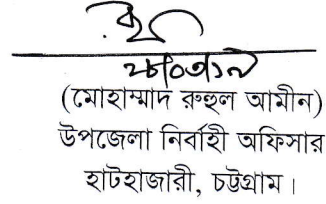 (মোহাম্মাদ রুহুল আমীন)
উপজেলা নির্বাহী অফিসার
হাটহাজারী, চট্টগ্রাম।